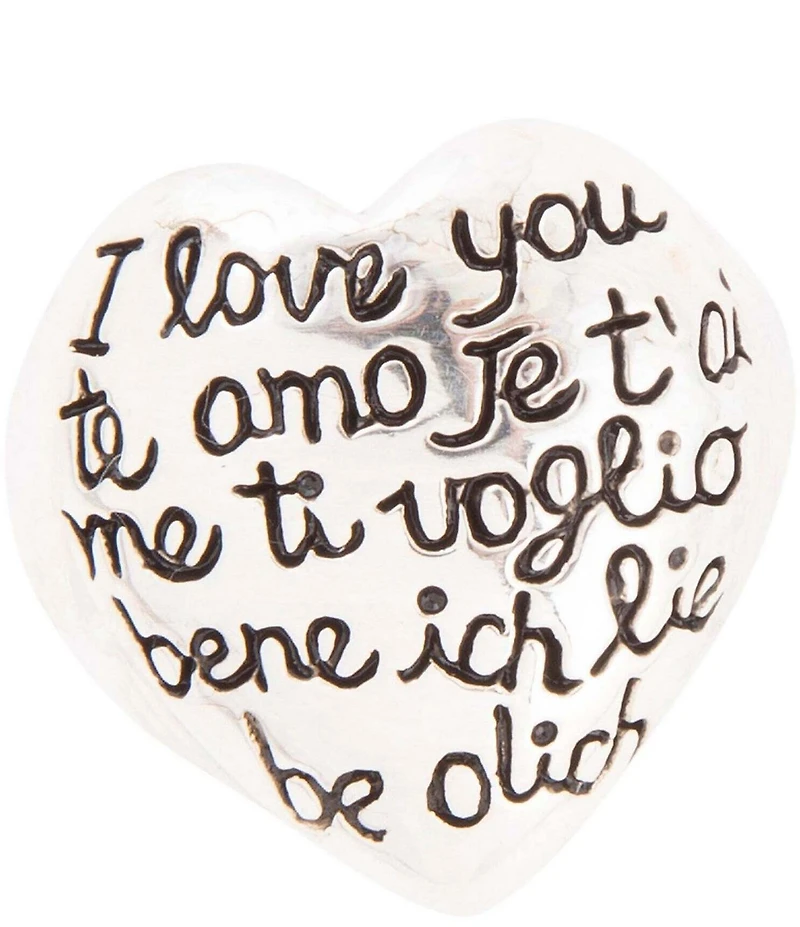 I love you
te amo Je t'ai
me ti voglio
bene ich lie
be olich